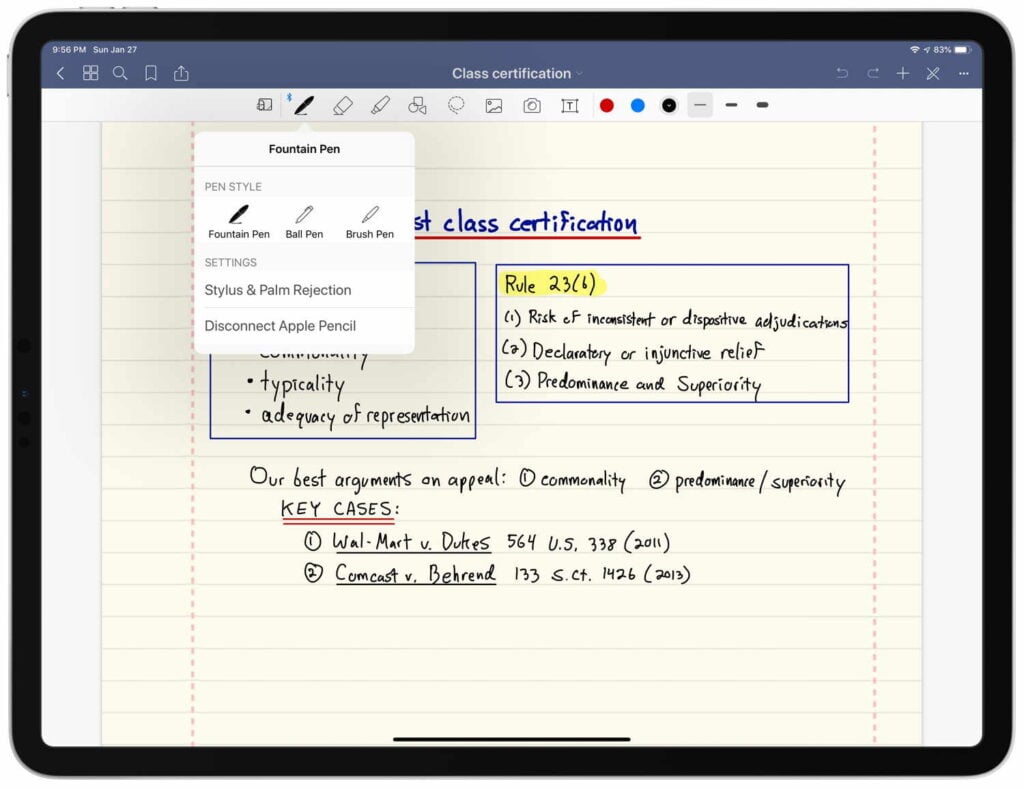 9:56 PM Sun Jan 27
83%
Class certification
T
Fountain Pen
PEN STYLE
Fountain Pen Ball Pen Brush Pen
SETTINGS
Stylus & Palm Rejection
Disconnect Apple Pencil
st class certification
commonality
• typicality
• adequacy of representation
Rule 23(b)
(1) Risk of inconsistent or dispositive adjudications
(2) Declaratory or injunctive relief
(3) Predominance and Superiority
Our best arguments on appeal: ① commonality ② predominance/superiority
KEY CASES:
① Wal-Mart v. Dukes 564 U.S. 338 (2011)
② Comcast v. Behrend 133 S.Ct. 1426 (2013)